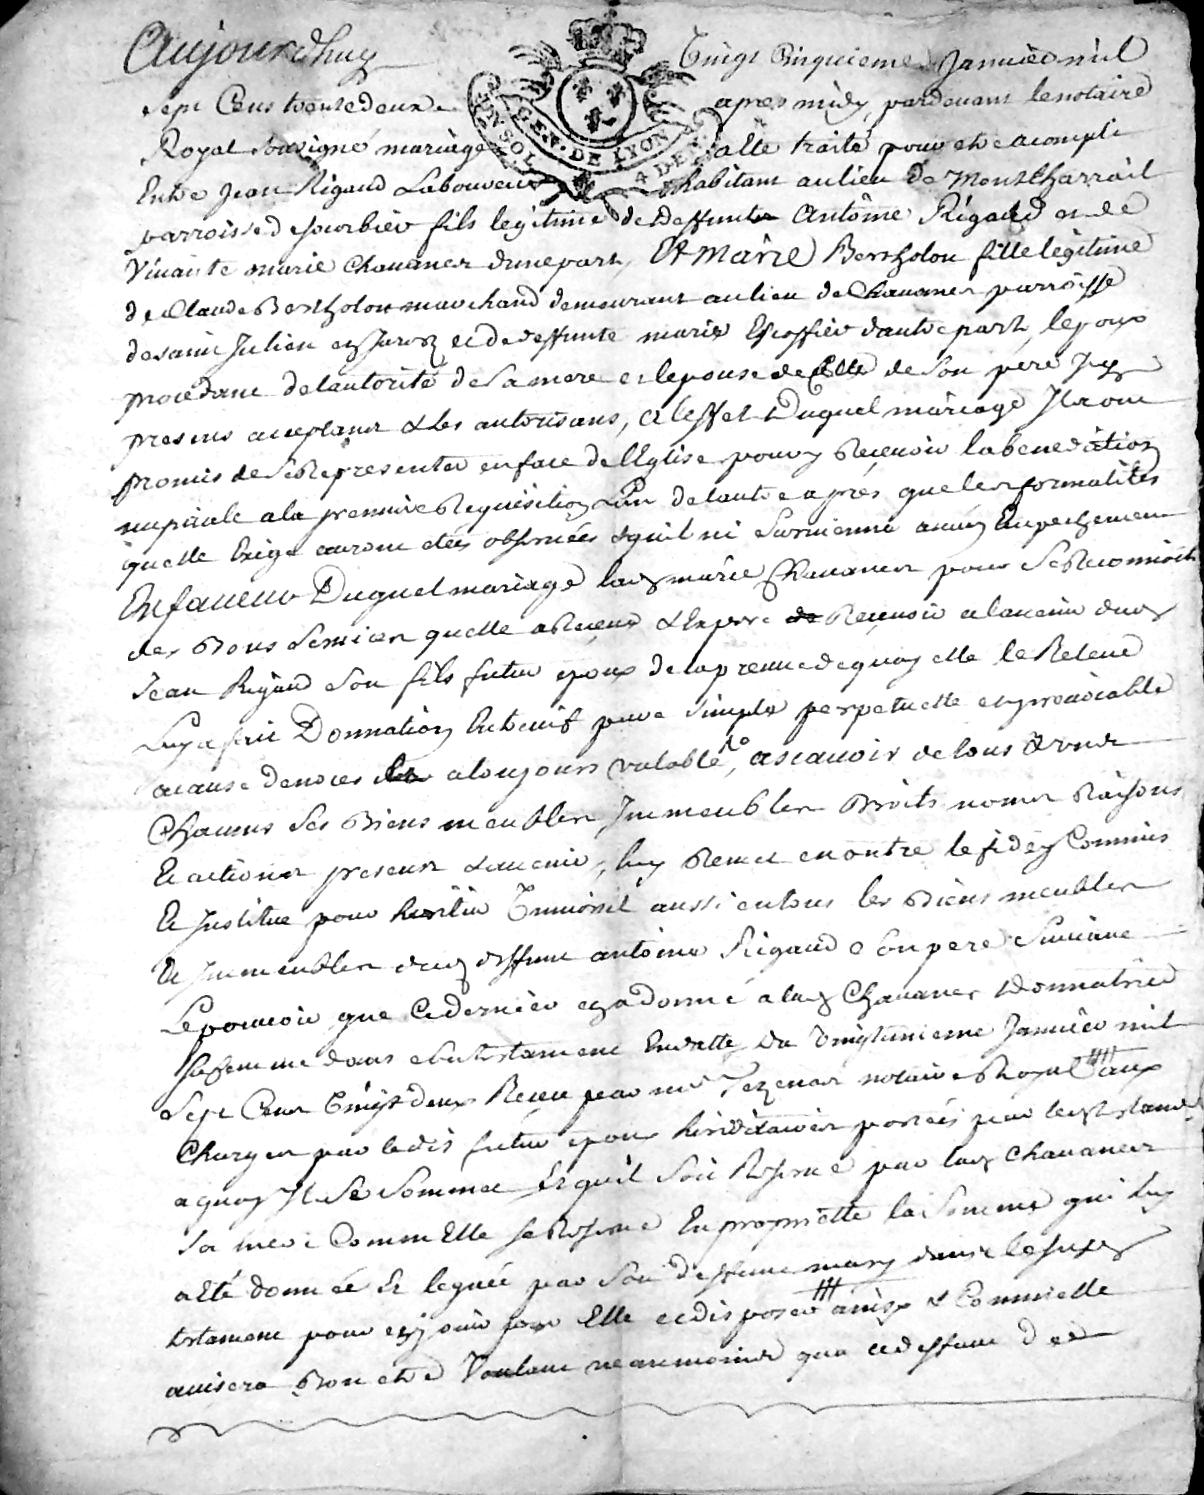 Aujourdhuy vingt cinquieme Janvier mil
sept Cens trente deux apres midy pardevant le notaire
Royal Soussigné mariage a Eté traité pour etre acompli
Entre Jean Rigaud Laboureur habitant au lieu de Montcharrail
parroisse de jourbier fils legitime de deffunt Antoine Rigaud et de
Vivante marie Chavaner dune part, Et Marie Bertholon fille legitime
de Claude Bertholon marchand demeurant au lieu de Chavaner parroisse
de saint Julien en Jarez et de deffunte marie Escoffier dautre part, lepoux
procedant de lautorité de Sa mere et lepouse de Celle de Son pere Icy
presens acceptant & les autorisans, a leffet Duquel mariage Ils ont
promis de Se Representer en face de lEglise pour y Recevoir la benediction
nuptiale a la premiere Requisition Lun de lautre apres que les formalités
quelle Exige auront étés observées & quil ni Survienne aucun Empechement
En faveur Duquel mariage lad marie Chavaner pour Se Reconnoitre
des Bons Services quelle a Receus & Espere Recevoir a lavenir dud
Jean Rigaud Son fils futur epoux de la preuve dequoy elle le Releve
Luy a fait Donnation Entrevifs pure Simple perpetuelle et irrevocable
a cause de noces a toujours valable, ascavoir de tous & uns
Chacuns Ses Biens meubles Immeubles Droits noms Raisons
Et actions presens & avenir, luy Remet en outre le fideycommis
Et Institue pour heritier Universel aussi en tous les Biens meubles
Et Immeubles dud deffunt antoine Rigaud Son pere Suivant
Le pouvoir que ce dernier en a donné a lad Chavaner Donnatrice
Sa femme dans Son testament En datte du Vingtunieme Janvier mil
Sept Cens Vingt deux Receu par mr Tezenas notaire Royal aux
Charges par ledit futur epoux hereditaires portées par led testament
a quoy Il Se Soumet Et quil Soit Reservé par lad Chavaner
Sa mere Comm Elle Se Reserve En proprietté la Somme qui luy
a Eté donnée Et leguée par Son deffunt mary dans le Susd
testament pour en jouir par Elle et disposer ainsy & Comm elle
avisera Bon etre Voulant neanmoins qua ce deffaut de
GEN. DE LYON
UN SOL 4 DEN